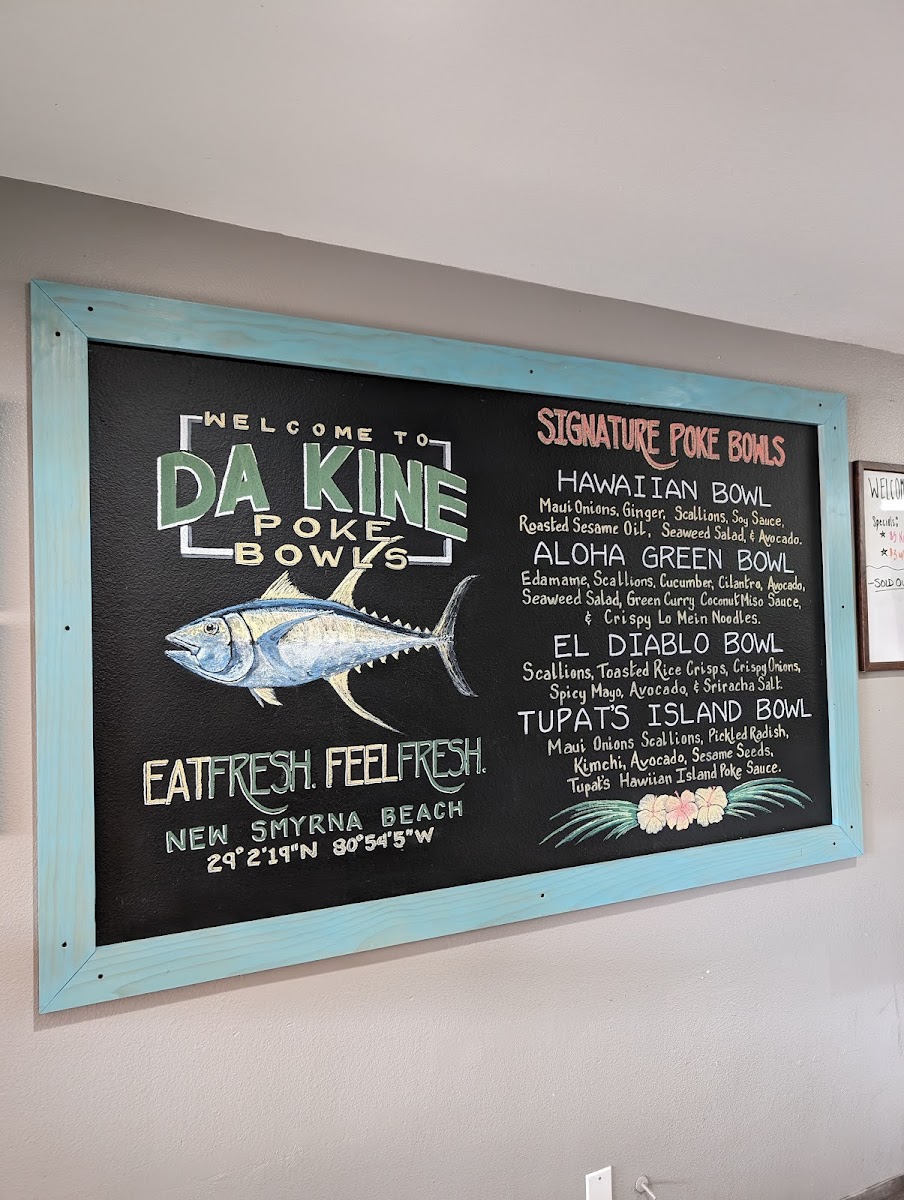 WELCOME TO
DA KINE
POKE
BOWLS
EATFRESH. FEELFRESH.
NEW SMYRNA BEACH
29°2'19"N 80°54'5"W
SIGNATURE POKE BOWLS
HAWAIIAN BOWL
Maui Onions, Ginger, Scallions, Soy Sauce,
Roasted Sesame Oil, Seaweed Salad, & Avocado.
ALOHA GREEN BOWL
Edamame, Scallions, Cucumber, Cilantro, Avocado,
Seaweed Salad, Green Curry Coconut Miso Sauce,
& Crispy Lo Mein Noodles.
EL DIABLO BOWL
Scallions, Toasted Rice Crisps, Crispy Onions,
Spicy Mayo, Avocado, & Sriracha Salt.
TUPAT'S ISLAND BOWL
Maui Onions Scallions, Pickled Radish,
Kimchi, Avocado, Sesame Seeds,
Tupat's Hawiian Island Poke Sauce.
Specials: